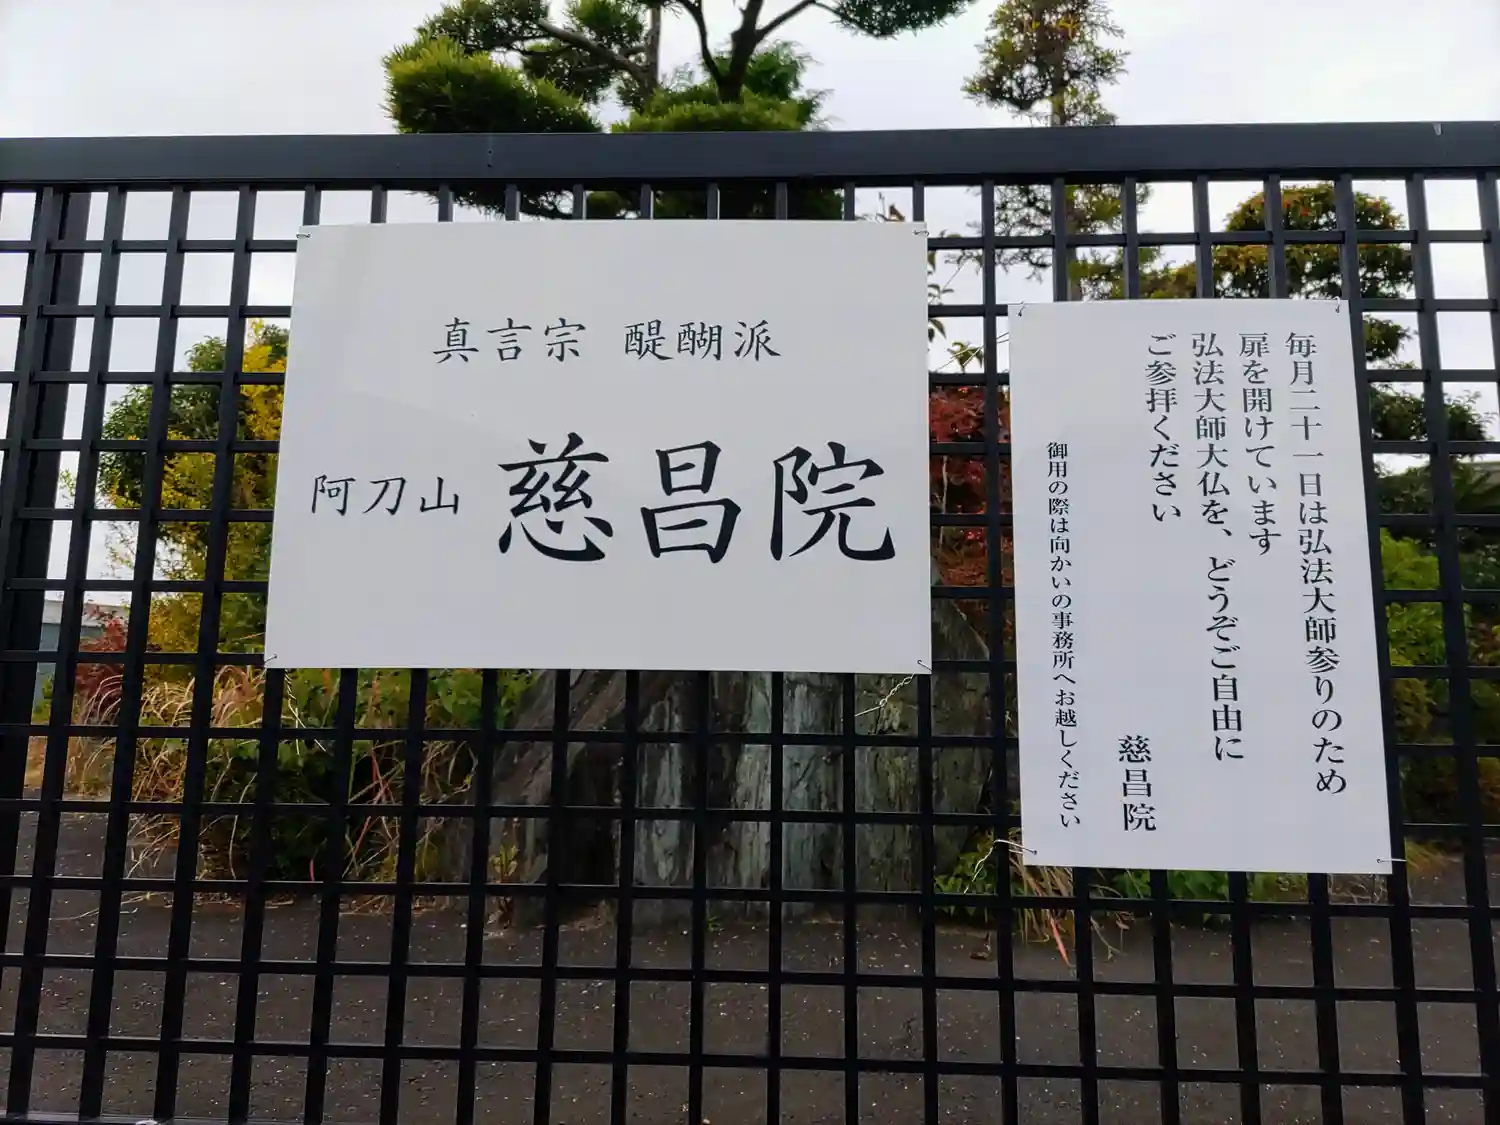 真言宗 醍醐派
阿刀山 慈昌院
毎月二十一日は弘法大師参りのため
扉を開けています
弘法大師大仏を、どうぞご自由に
ご参拝ください
慈昌院
御用の際は向かいの事務所へお越しください